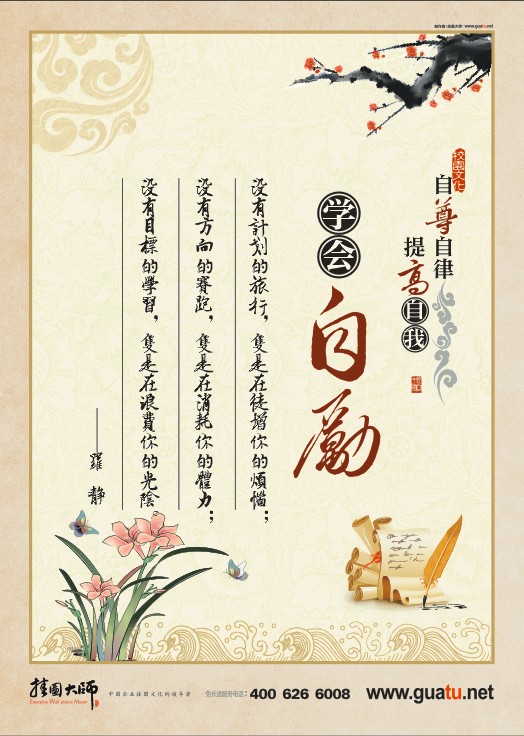 www.guatu.net
校园文化
自尊自律
提高自我
学会
自励
没有計划的旅行，隻是在徒增你的煩惱；
没有方向的賽跑，隻是在消耗你的體力；
没有目標的學習，隻是在浪費你的光陰
——羅靜
挂圖大師
Enterprise Wall picture Master
中国企业挂图文化的领导者
免长途服务电话：400 626 6008
www.guatu.net